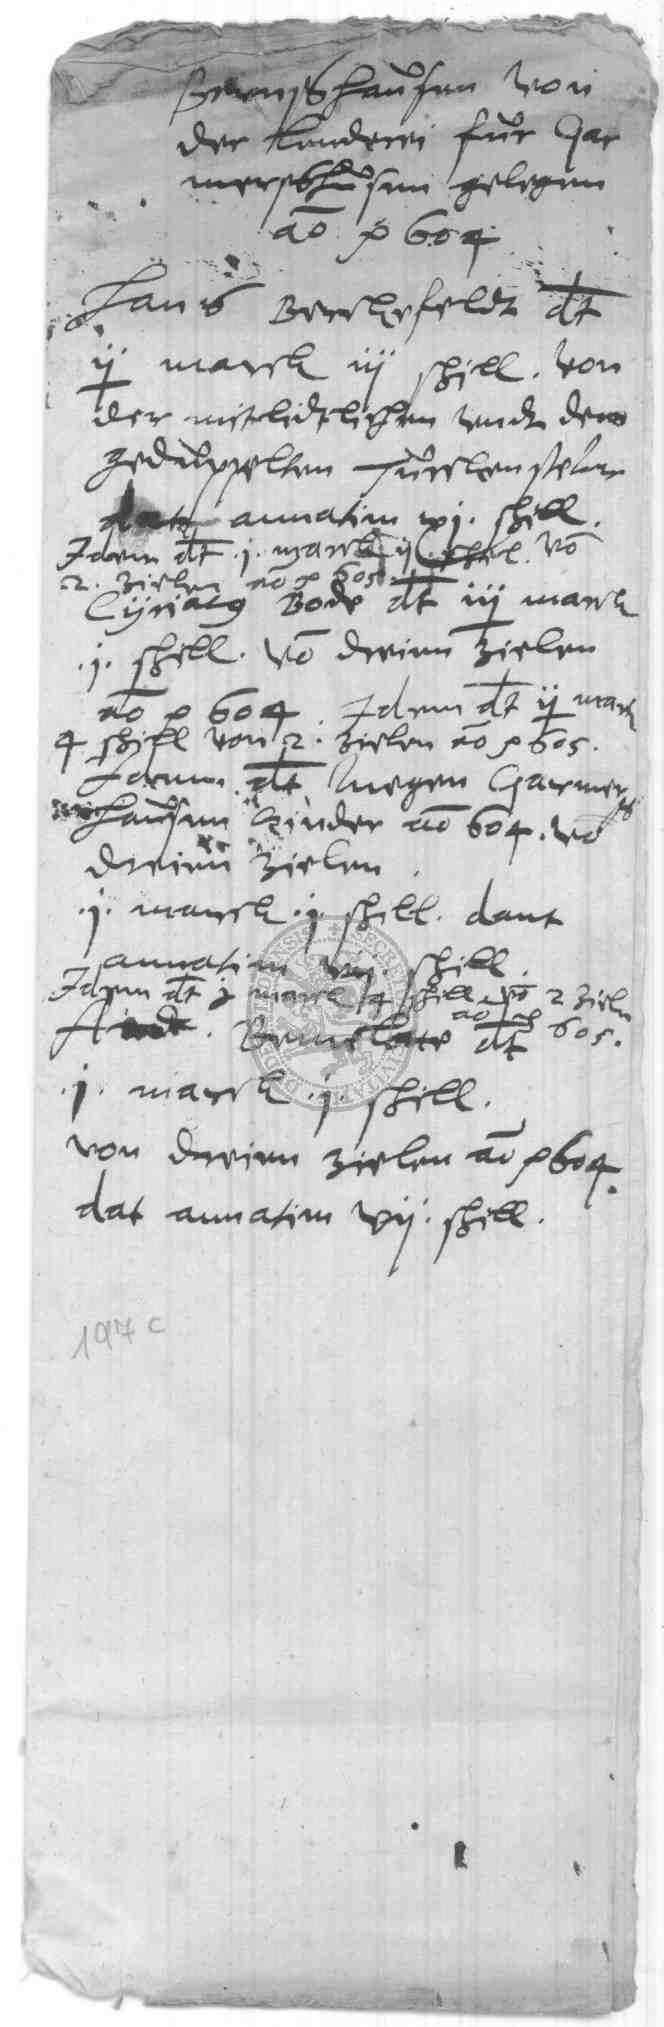 Bernßhausen von
der lenderei für Gar
merßhusen gelegen
aō p 604
Hans Berckefeldt dt
ij marck iij ßhill. von
der mitlidtlichen vndt dem
gedüppelten
dat annatim xj. ßhill.
Idem dt .j. marck ij ßhel. vō
2. Zielen aō p 605
Cyriacg Bode dt iij marck
.j. ßhill. vō dreien Zielen
aō p 604. Idem dt ij marck
4 ßhill von 2. Zielen aō p 605.
Idem dt wegen Garmerß
hausen kinder aō 604. vō
dreien Zielen.
.j. marck .j. ßhill. dant
annatim vij. ßhill.
Idem dt j marck 4 ßhill vō 2 Zieln
aō p 605.
dt
.j. marck .j. ßhill.
von dreien Zielen aō p 604.
dat annatim vij. ßhill.
197 c